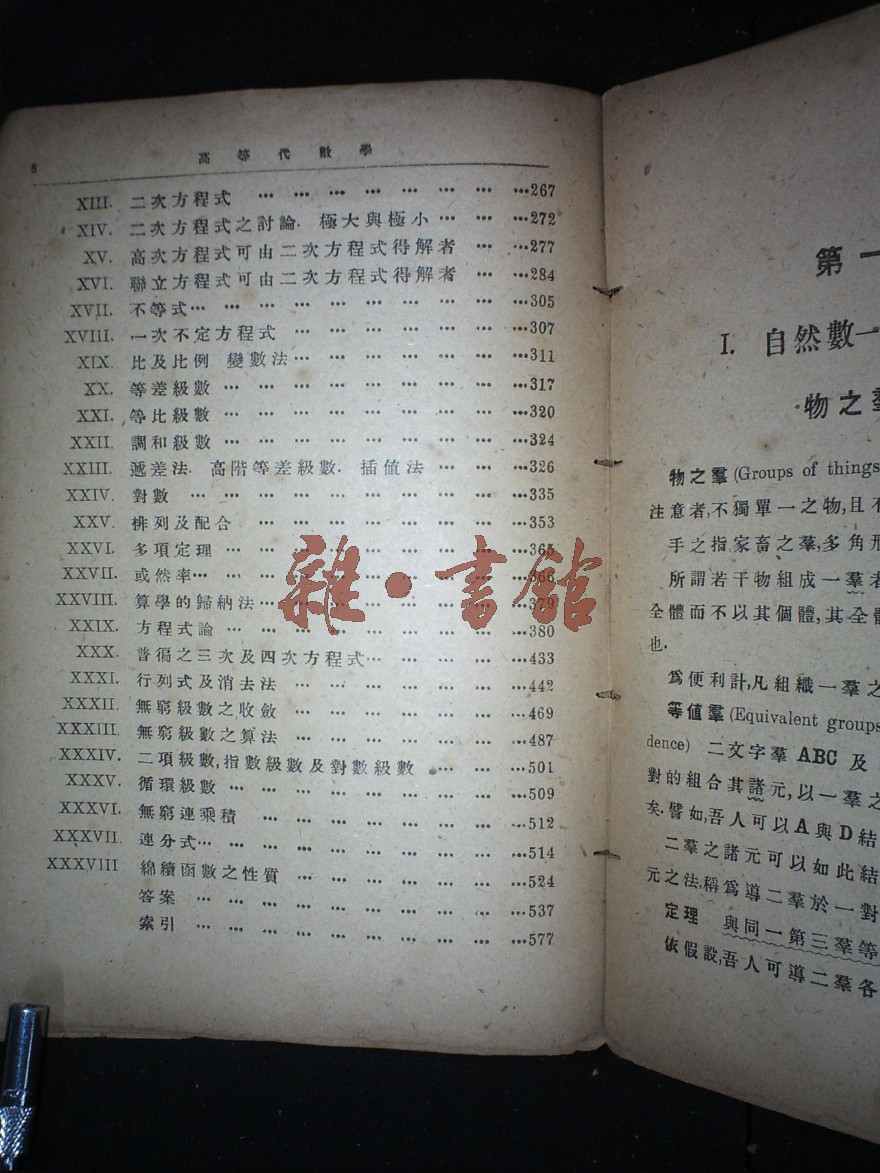 6 高等代數學
XIII. 二次方程式 … … … … … … … …267
XIV. 二次方程式之討論. 極大與極小 … … …272
XV. 高次方程式可由二次方程式得解者 … …277
XVI. 聯立方程式可由二次方程式得解者 … …284
XVII. 不等式… … … … … … … … … …305
XVIII. 一次不定方程式 … … … … … … …307
XIX. 比及比例 變數法… … … … … … …311
XX. 等差級數 … … … … … … … … …317
XXI. 等比級數 … … … … … … … … …320
XXII. 調和級數 … … … … … … … … …324
XXIII. 遞差法. 高階等差級數. 插値法 … … …326
XXIV. 對數 … … … … … … … … … …335
XXV. 排列及配合 … … … … … … … …353
XXVI. 多項定理 … … … … … … … … …365
XXVII. 或然率… … … … … … … … … …366
XXVIII. 算學的歸納法… … … … … … … …379
XXIX. 方程式論 … … … … … … … … …380
XXX. 普徧之三次及四次方程式… … … … …433
XXXI. 行列式及消去法 … … … … … … …442
XXXII. 無窮級數之收斂 … … … … … … …469
XXXIII. 無窮級數之算法 … … … … … … …487
XXXIV. 二項級數,指數級數及對數級數 … … …501
XXXV. 循環級數 … … … … … … … … …509
XXXVI. 無窮連乘積 … … … … … … … …512
XXXVII. 連分式… … … … … … … … … …514
XXXVIII 綿續函數之性質 … … … … … … …524
答案 … … … … … … … … … …537
索引 … … … … … … … … … …577
雜·書館
第一
I. 自然數一
物之羣
物之羣 (Groups of things
注意者,不獨單一之物,且不
手之指,家畜之羣,多角形
所謂若干物組成一羣者
全體而不以其個體,其全體
也.
爲便利計,凡組織一羣之
等値羣 (Equivalent groups
dence) 二文字羣 ABC 及
對的組合其諸元,以一羣之
矣.譬如,吾人可以A與D結
二羣之諸元可以如此結
元之法,稱爲導二羣於一對
定理 與同一第三羣等
依假設,吾人可導二羣各